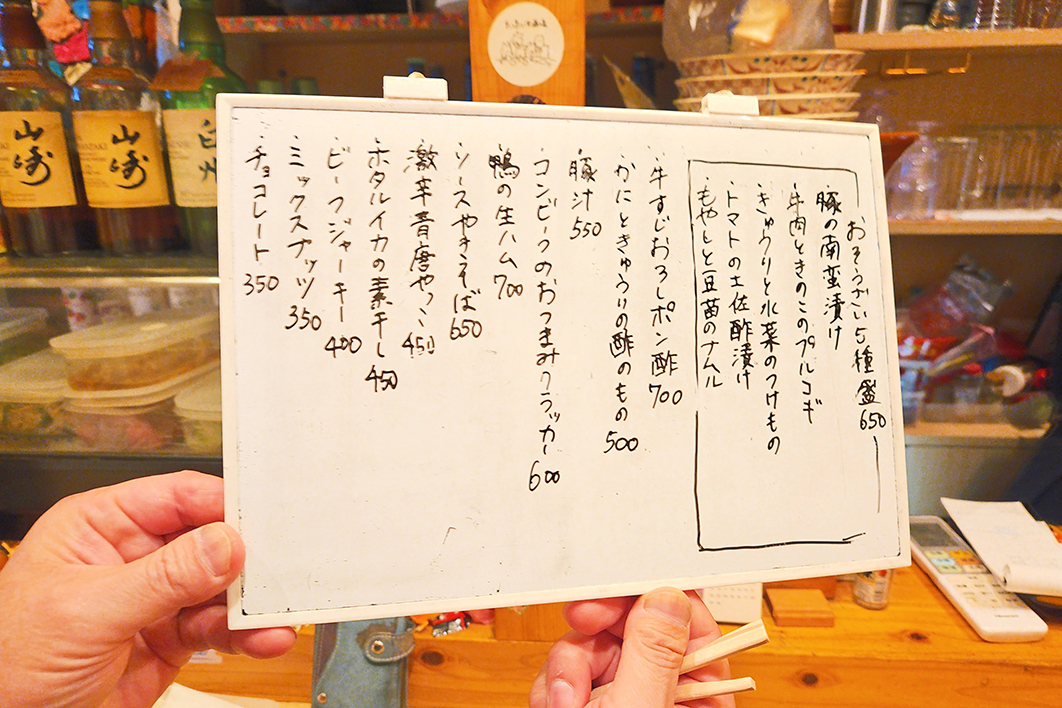 おそうざい5種盛650
豚の南蛮漬け
牛肉ときのこのプルコギ
きゅうりと水菜のつけもの
トマトの土佐酢漬け
もやしと豆苗のナムル
・牛すじおろしポン酢700
・かにときゅうりの酢のもの500
・豚汁550
・コンビーフのおつまみクラッカー600
・鴨の生ハム700
・ソースやきそば650
・激辛青唐やっこ450
・ホタルイカの素干し450
・ビーフジャーキー400
・ミックスナッツ350
・チョコレート350
山崎
山崎
白州